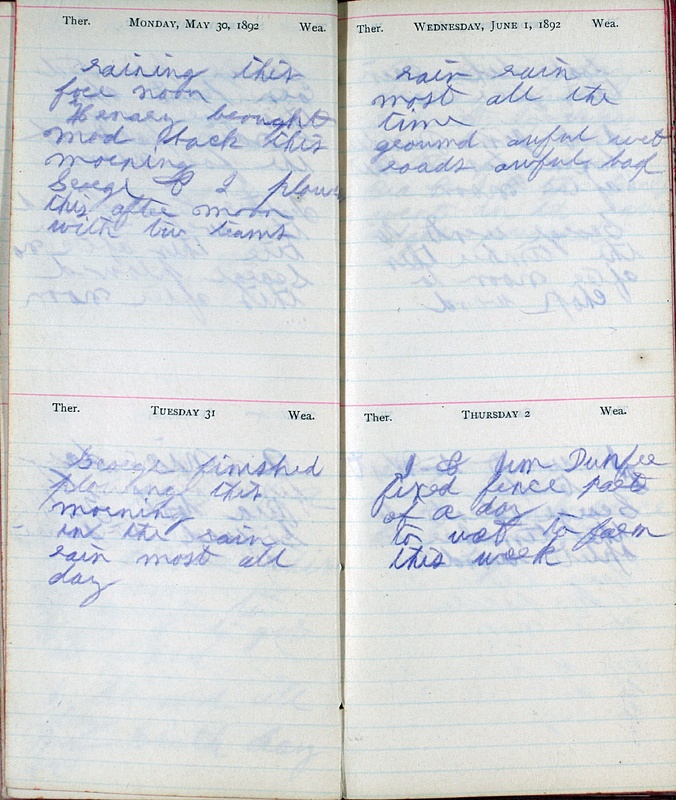 Ther. MONDAY, MAY 30, 1892 Wea.
raining this
fore noon
Henery brought
mod back this
morning
George & I plow
this after noon
with tw teams
Ther. TUESDAY 31 Wea.
George finished
plowing this
morning
in the rain
rain most all
day
Ther. WEDNESDAY, JUNE 1, 1892 Wea.
rain rain
most all the
time
ground awful wet
roads awful bad
Ther. THURSDAY 2 Wea.
I & Jim Dunfee
fixed fence part
of a day
to wet to farm
this week